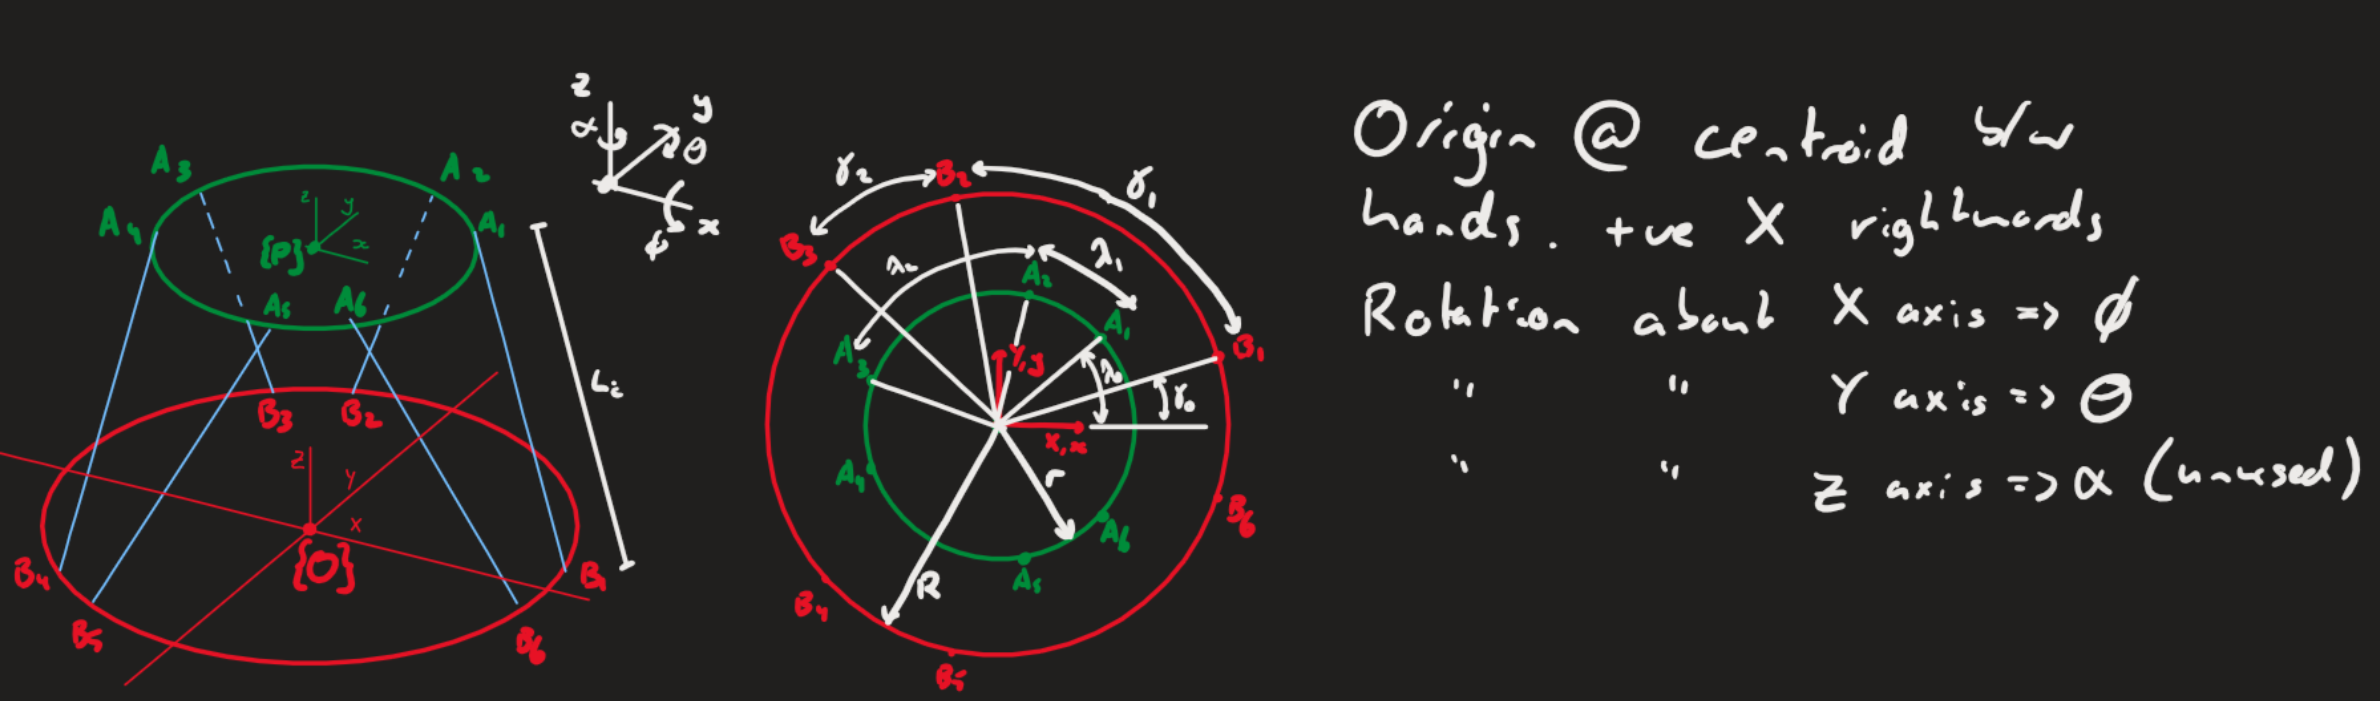 A3
A2
A4
A1
z
y
x
{P}
A5
A6
B3
B2
z
y
x
{O}
B4
B1
B5
B6
Li
z
y
α
θ
x
φ
γ2
B2
γ1
B3
λ2
λ1
A2
A1
B1
A3
Y,y
λ0
γ0
X,x
A4
r
B6
A6
R
A5
B4
B5
Origin @ centroid b/w
hands. +ve X rightwards
Rotation about X axis => φ
" " Y axis => θ
" " z axis => α (unused)